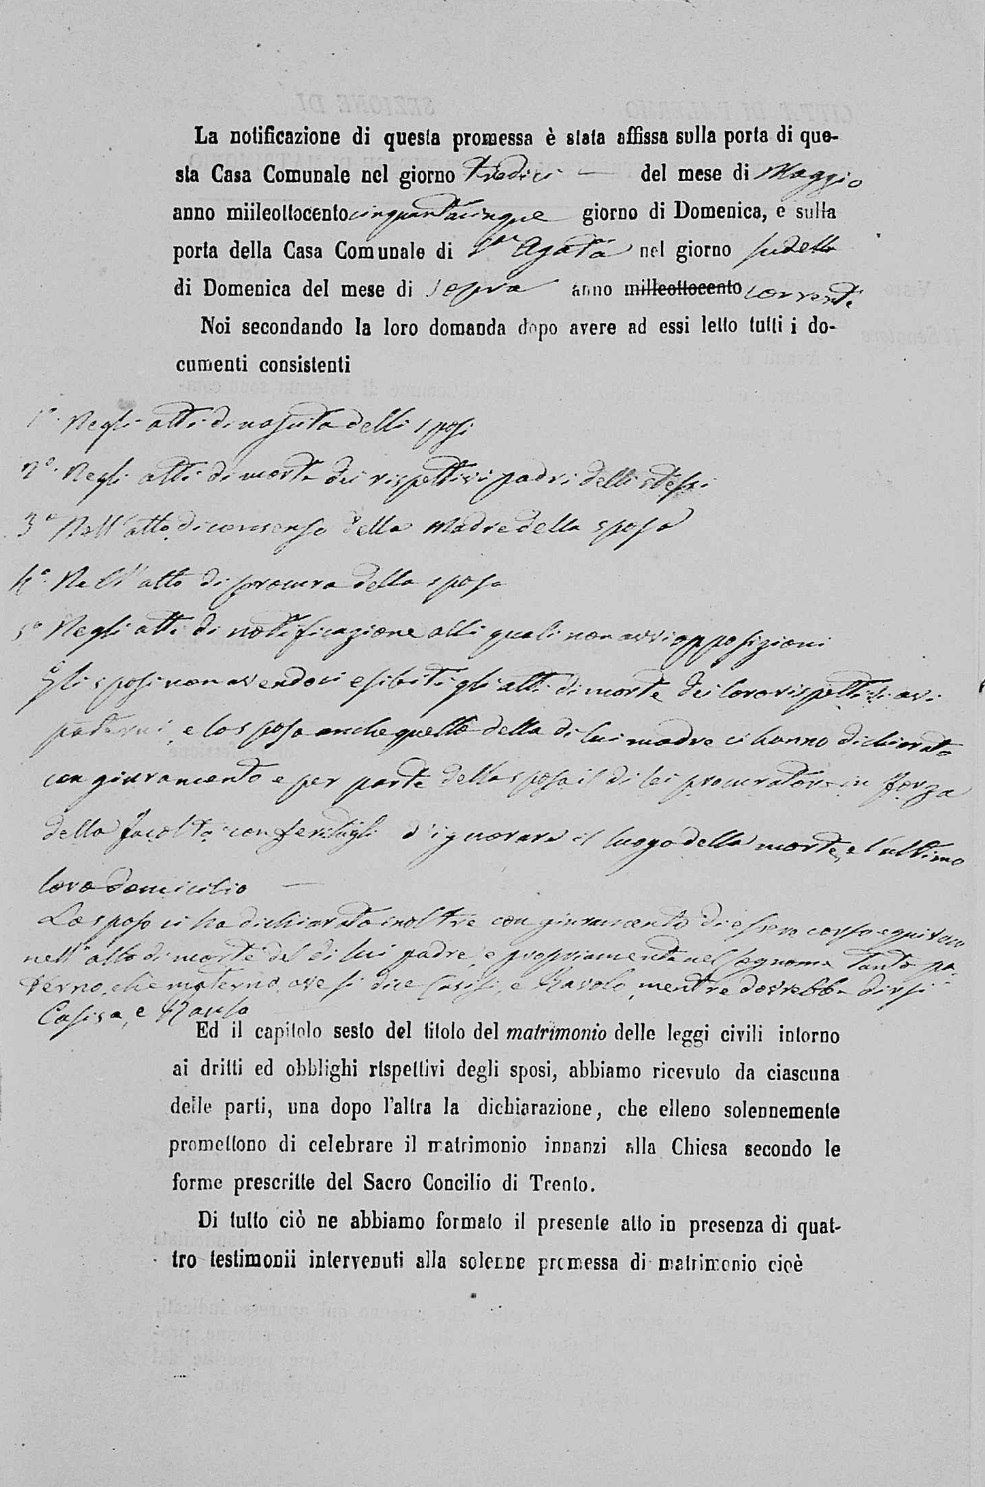 La notificazione di questa promessa è stata affissa sulla porta di que-
sta Casa Comunale nel giorno Tredici — del mese di Maggio
anno miileottocento cinquantacinque giorno di Domenica, e sulla
porta della Casa Comunale di Agata nel giorno sudetto
di Domenica del mese di sopra anno milleottocento corrente
Noi secondando la loro domanda dopo avere ad essi letto tutti i do-
cumenti consistenti
1° Negli atti di nascita delli sposi
2° Negli atti di morte dei rispettivi padri delli stessi
3° Nell'atto di consenso della Madre della sposa
4° Nell'atto di procura della sposa
5° Negli atti di notificazione alli quali non avvi opposizioni
Gli sposi non avendoci esibiti gli atti di morte dei loro rispettivi avi
paterni, e lo sposo anche quello della di lui madre ci hanno dichiarato
con giuramento e per parte della sposa il di lei procuratore in forza
della facoltà conferitagli d'ignorare il luogo della morte, e l'ultimo
loro domicilio —
Lo sposo ci ha dichiarato inoltre con giuramento di essere corso equivoco
nell'atto di morte del di lui padre, e propriamente nel cognome tanto pa-
terno, che materno, ove si dice Casisi, e Ravolo, mentre dovrebbe dirsi
Casisa, e
Ed il capitolo sesto del titolo del matrimonio delle leggi civili intorno
ai dritti ed obblighi rispettivi degli sposi, abbiamo ricevuto da ciascuna
delle parti, una dopo l'altra la dichiarazione, che elleno solennemente
promettono di celebrare il matrimonio innanzi alla Chiesa secondo le
forme prescritte del Sacro Concilio di Trento.
Di tutto ciò ne abbiamo formato il presente atto in presenza di quat-
tro testimonii intervenuti alla solenne promessa di matrimonio cioè